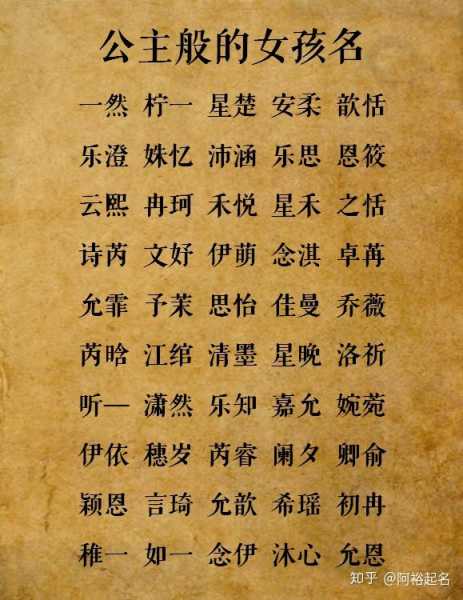 公主般的女孩名
一然 柠一 星楚 安柔 歆恬
乐澄 姝忆 沛涵 乐思 恩筱
云熙 冉珂 禾悦 星禾 之恬
诗芮 文妤 伊萌 念淇 卓苒
允霏 子茉 思怡 佳曼 乔薇
芮晗 江绾 清墨 星晚 洛祈
听一 潇然 乐知 嘉允 婉菀
伊依 穗岁 芮睿 阑夕 卿俞
颖恩 言琦 允歆 希瑶 初冉
稚一 如一 念伊 沐心 允恩
知乎 @阿裕起名